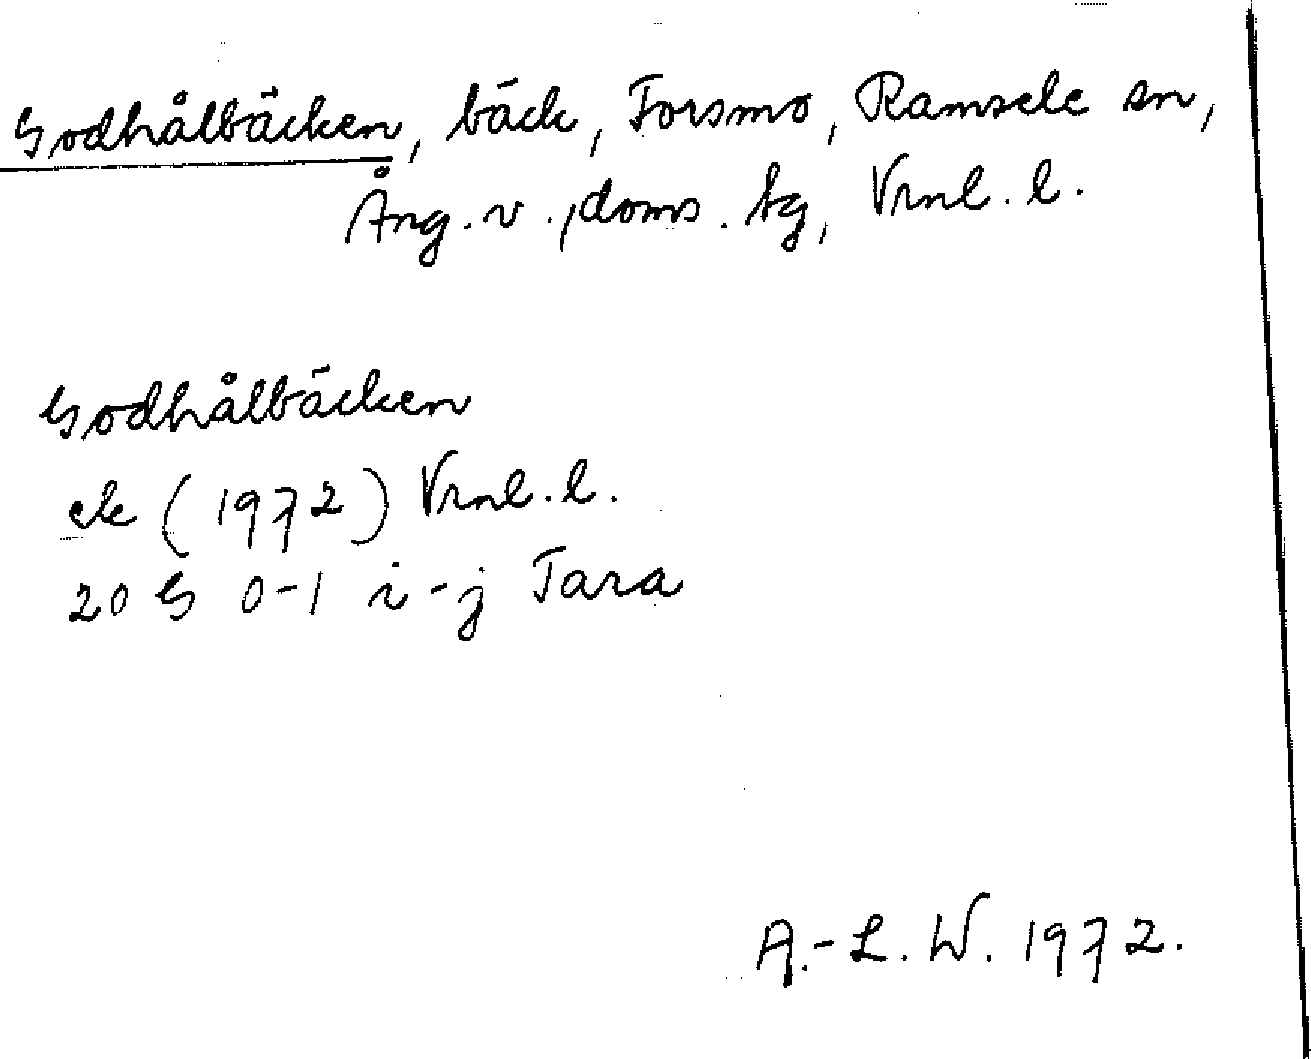 Godhålbäcken, bäck, Forsmo, Ramsele sn,
Ång. v., doms. tg, Vrnl. l.
Godhålbäcken
ek (1972) Vrnl. l.
20 G 0-1 i-j Tara
A.-L. W. 1972.